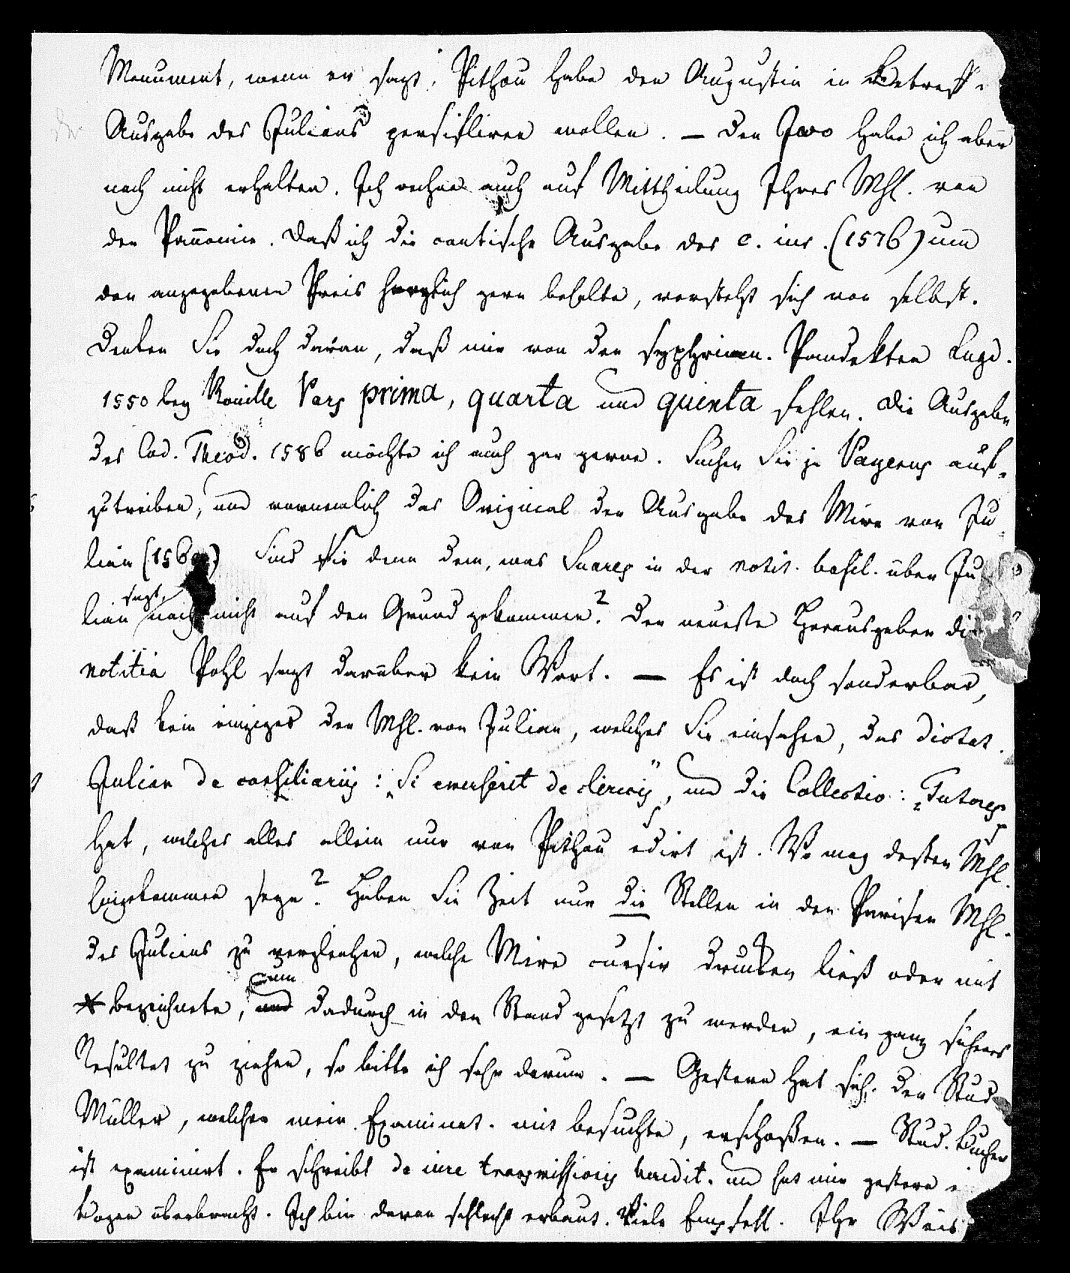 Monument, wenn er sagt, Pithou habe den Augustin in Betreff
Ausgabe des Julians persifliren wollen. — Den Ivo habe ich aber
noch nicht erhalten. Ich rechne auch auf Mittheilung Ihres Msc. von
der Pannomie. Daß ich die contische Ausgabe des c. iur. (1576) um
den angegebenen Preis herzlich gern behalte, versteht sich von selbst.
Denken Sie doch daran, daß mir von den Pandekten Lugd.
1550 bey Rouille Pars prima, quarta und quinta fehlen. Die Ausgabe
des Cod. Theod. 1586 möchte ich auch gar gerne. Suchen Sie ja auf-
zutreiben, und vornemlich das Original der Ausgabe des Mire von Ju
lian (156 ) Sind Sie denn dem, was Suares in der notit. basil. über Ju
lian sagt, noch nicht auf den Grund gekommen? Der neueste Herausgeber
notitia Pohl sagt darüber kein Wort. — Es ist doch sonderbar,
daß kein einziges der Msc. von Julian, welches Sie einsahen, das dictat.
Julian de consiliariis: und die Collectio: „Tutores
hat, welches alles allein nur von Pithou edirt ist. Wo mag dessen Msc.
hingekommen seyn? Haben Sie Zeit nur die Stellen in den Pariser Msc.
des Julians zu vergleichen, welche Mire cursiv drucken ließ oder mit
* bezeichnete, um dadurch in den Stand gesetzt zu werden, ein ganz sicheres
Resultat zu ziehen, so bitte ich sehr darum. — Gestern hat sich der Stud.
Müller, welcher mein Examinat. mit besuchte, erschoßen. — Stud. Bucher
ist examinirt. Er schreibt de iure transmissionis und hat mir gestern
Bogen überbracht. Ich bin davon schlecht erbaut. Viele Empfehl. Ihr